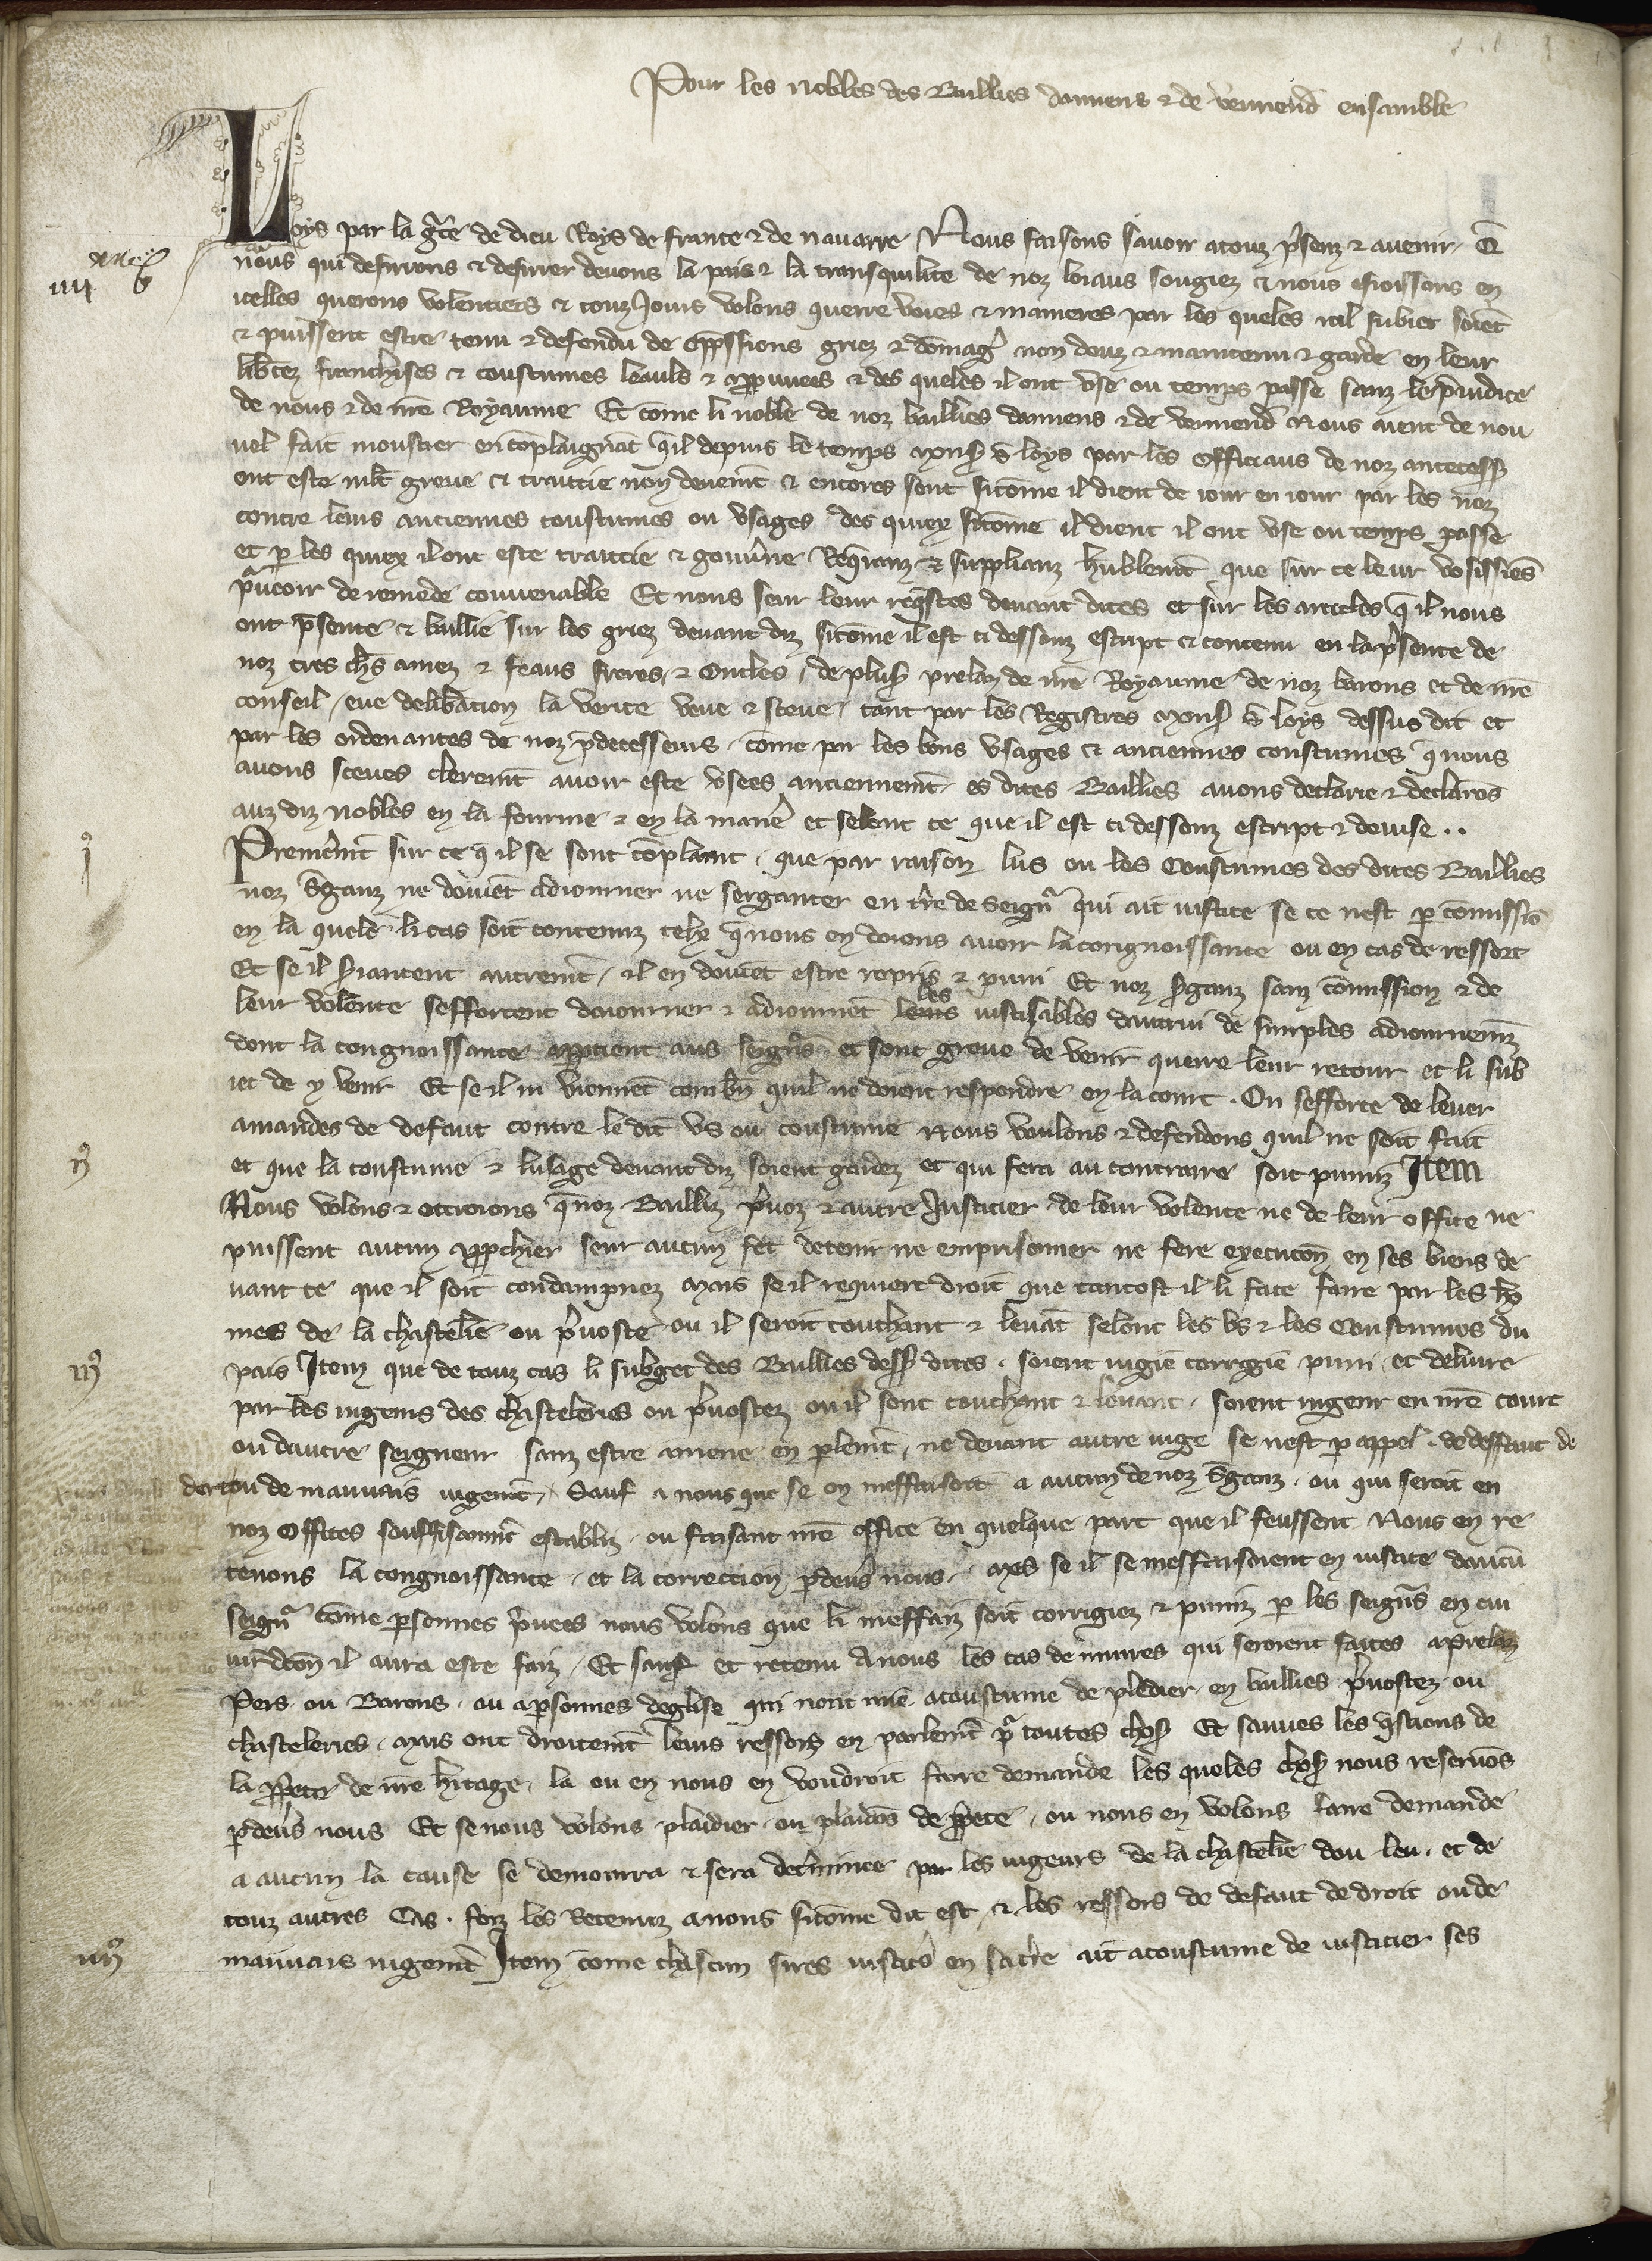 Pour les nobles des Baillies damiens & de vermend ensamble
Loys par la gr̄ce de dieu Roys de france & de nauarre Nous faisons sauoir atouz p̄senz & auenir. Q̄
nous qui desirrons & desirrer deuons la pais & la transquilite de noz loiaus sougiez & nous esioissons en
icelles querons volentiers & touz Jours volons querre voies & manieres par les queles icil subiet soiēt
& puissent estre tenu & defendu de opp̄ssions griez & dōmaḡ non deuz & maintenu & garde en leur
lib̄tez franchises & coustumes leauls & app̄uuees & des queles il ont vse ou temps passe sanz le p̄iudice
de nous & de nr̄e Royaume Et cōme li noble de noz baillies damiens & de vermend̄ Nous aient de nou
uel fait moustrer en cōplaignāt q̄ il depuis le temps mons̄ s̄ loys par les officiaus de noz ancecess̄
ont este mlt̄ greue & traittie non deuemt̄ & encores sont sicōme il dient de iour en iour par les noz
contre leurs anciennes coustumes ou vsages des quiex sicōme il dient il ont vse ou temps passe
et p̄ les quiex il ont este traittie & gouu̓ne Req̄ranz & supplianz hūblemt̄ que sur ce leur vosissiēs
p̄ueoir de remede conuenable Et nous seur leur req̄stes deuant dites et sur les articles q̄ il nous
ont p̄sente & baillie sur les griez deuant diz sicōme il est ci dessouz escript & contenu en la p̄sence de
noz tres ch̄s amez & feaus freres & Oncles, de plus̄ prelaz de nr̄e Royaume de noz barons et de nr̄e
conseil, eue delib̄acion la verite veue & sceue, tant par les Registres mons̄ s̄ loys dessus dit et
par les ordenances de noz p̄decesseurs, cōme par les bons vsages & anciennes coustumes q̄ nous
auons sceues cleremt̄ auoir este vsees anciennemt̄ es dites Baillies auons declarie & declarōs
auz diz nobles en la fourme & en la manē et selonc ce que il est ci dessouz escript & deuise ..
Premēmt̄ sur ce q̄ il se sont cōplaint, que par raison lus ou les Coustumes des dites Baillies
noz s̄ganz ne doiuēt adiourner ne serganter en tr̄e de seign̄ qui ait iustice se ce nest p̄ cōmissiō
en la quele li cas soit contenuz telx q̄ nous en doions auoir la congnoissance ou en cas de ressort
Et se il s̄iantent autremt̄, il en doiuēt estre repris & puni Et noz s̄ganz sanz cōmission & de
leur volente sefforcent daiourner & adiournēt les leurs iusticables dautrui de simples adiournemz̄
dont la congnoissance app̄tient aus seign̄s et sont greue de venir querre leur retour et li sub
iet de y venir Et se il ni viennēt combn̄ quil ne doient respondre en la court. On sefforce de leuer
amandes de defaut contre le dit vs ou coustume Nous voulons & defendons quil ne soit fait
et que la coustume & lusage deuant diz soient gardez et qui fera au contraire soit puniz Item
Nous volons & ottroions q̄ noz Bailliz p̄uoz & autre Justicier de leur volente ne de leur office ne
puissent aucun app̄chier seur aucun fet detenir ne emprisonner ne fere execucōn en ses biens de
uant ce que il soit condampnez mais se il requiert droit que tantost il li face faire par les hō
mes de la chastelie ou p̄uoste ou il seroit couchant & leuāt selonc les vs & les Coustumes du
pais Item que de touz cas li subget des Baillies dess̄ dites. soient iugie corrigie puni et deliure
par les iugeurs des chasteleries ou p̄uostez ou il sont couchant & leuant, soient iugeur en nr̄e court
ou dautre seigneur sanz estre amene en plemt̄, ne deuant autre iuge se nest p̄ appel. de deffaut de
droit ou de mauuais iugemt̄, Sauf a nous que se on meffaisoit a aucun de noz s̄ganz. ou qui seroit en
noz offices souffisanmt̄ establiz. ou faisant nr̄e office en quelque part que il feussent Nous en re
tenons la congnoissance, et la correccion p̄ deuers nous, mes se il se meffaisoient en iustice daucū
seign̄ cōme p̄sonnes p̄uees nous volons que li meffaiz soit corrigiez & puniz p̄ les seign̄s en cui
iurdcōn il aura este faiz, Et sauf et retenu Anous les cas de iniures qui seroient faites aprelaz
Pers ou Barons. ou ap̄sonnes deglise qui nont mie acoustume de pledier en baillies p̄uostez ou
chasteleries. mais ont droitemt̄ leurs ressors en parlemt̄ p̄ toutes chōs Et sauues les q̄stions de
la p̄p̄ete de nr̄e h̄itage, la ou en nous en voudroit faire demande les queles chōs nous reseruōs
p̄ deūs nous Et se nous volons plaidier ou plaidōs de p̄p̄ete, ou nous en volons faire demande
a aucun la cause se demourra & sera det̄minee par les iugeurs de la chastelie dou leu. et de
touz autres Cas. fors les Retenuz anous sicōme dit est, & les ressors de defaut de droit ou de
mauuais iugemt̄ Item cōme chascun sires iustic̄s en sa tr̄e ait acoustume de iusticier ses
iiij
j⁹
ij⁹
iij⁹
iiij⁹